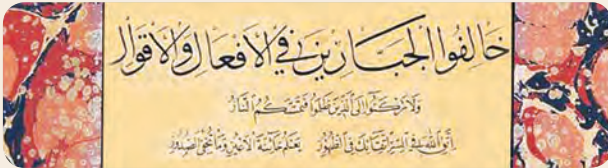 خَالِفُوا الْجَبَّارِينَ فِي الْافْعَالِ وَالْاقْوَالِ
وَلَا تَرْكَنُوا الَى الَّذِينَ ظَلَمُوا فَتَمَسَّكُمُ النَّارُ
اتَّقِ اللهَ فِي السِّرِّ اتِّقَائَكَ فِي الظُّهُورِ يَعْلَمُ خَائِنَةَ الْاعْيُنِ وَمَا تُخْفِي الصُّدُورُ